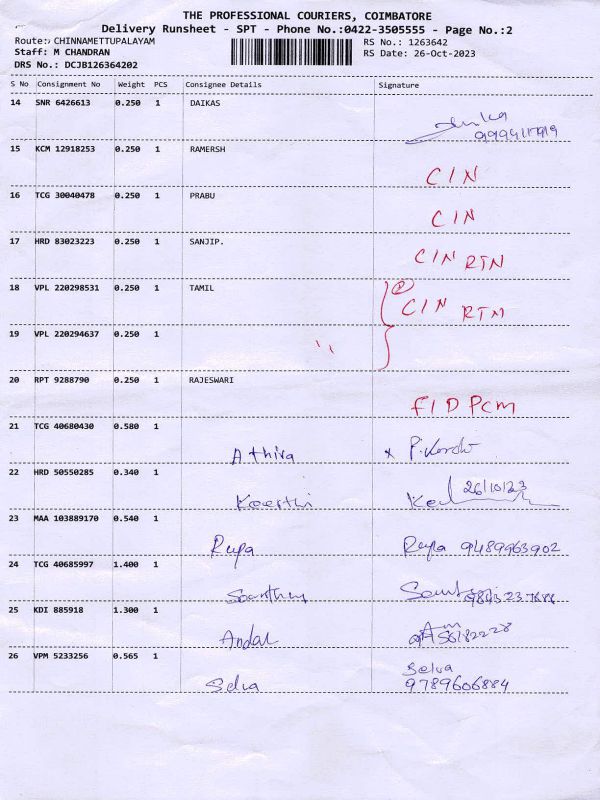 THE PROFESSIONAL COURIERS, COIMBATORE
Delivery Runsheet - SPT - Phone No.:0422-3505555 - Page No.:2
Route:- CHINNAMETTUPALAYAM RS No.: 1263642
Staff: M CHANDRAN RS Date: 26-Oct-2023
DRS No.: DCJB126364202
S No Consignment No Weight PCS Consignee Details Signature
14 SNR 6426613 0.250 1 DAIKAS
15 KCM 12918253 0.250 1 RAMERSH
C/N
16 TCG 30040478 0.250 1 PRABU
C/N
17 HRD 83023223 0.250 1 SANJIP.
C/N RTN
18 VPL 220298531 0.250 1 TAMIL
C/N RTN
19 VPL 220294637 0.250 1
20 RPT 9288790 0.250 1 RAJESWARI
F/D PCM
21 TCG 40680430 0.580 1
Athira
22 HRD 50550285 0.340 1
26/10/23
Keerthi
23 MAA 103889170 0.540 1
Rupa Rupa 9489963902
24 TCG 40685997 1.400 1
25 KDI 885918 1.300 1
Andal
26 VPM 5233256 0.565 1
Selva
Selva 9789606884